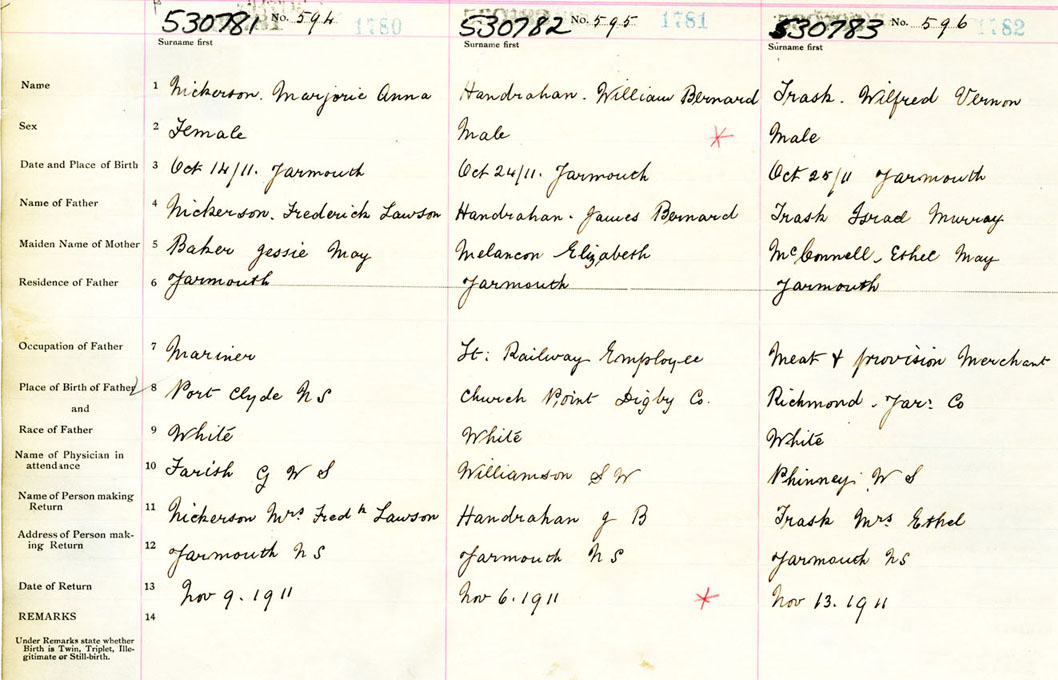 530781 No. 594 1780 530782 No. 595 1781 530783 No. 596 1782
Surname first Surname first Surname first
Name 1 Nickerson. Marjorie Anna Handrahan. William Bernard Trask. Wilfred Vernon
Sex 2 Female Male Male
Date and Place of Birth 3 Oct 14/11. Yarmouth Oct 24/11. Yarmouth Oct 25/11 Yarmouth
Name of Father 4 Nickerson. Frederick Lawson Handrahan. James Bernard Trask Israel Murray
Maiden Name of Mother 5 Baker Jessie May Melancon Elizabeth McConnell, Ethel May
Residence of Father 6 Yarmouth Yarmouth Yarmouth
Occupation of Father 7 Mariner St: Railway Employee Meat & provision Merchant
Place of Birth of Father 8 Port Clyde NS Church Point Digby Co. Richmond. Yar: Co
and
Race of Father 9 White White White
Name of Physician in
attendance 10 Farish G W S Williamson S W Phinney W S
Name of Person making
Return 11 Nickerson Mrs Fredk Lawson Handrahan J B Trask Mrs Ethel
Address of Person mak-
ing Return 12 Yarmouth NS Yarmouth NS Yarmouth NS
Date of Return 13 Nov 9. 1911 Nov 6. 1911 Nov 13. 1911
REMARKS 14
Under Remarks state whether
Birth is Twin, Triplet, Ille-
gitimate or Still-birth.